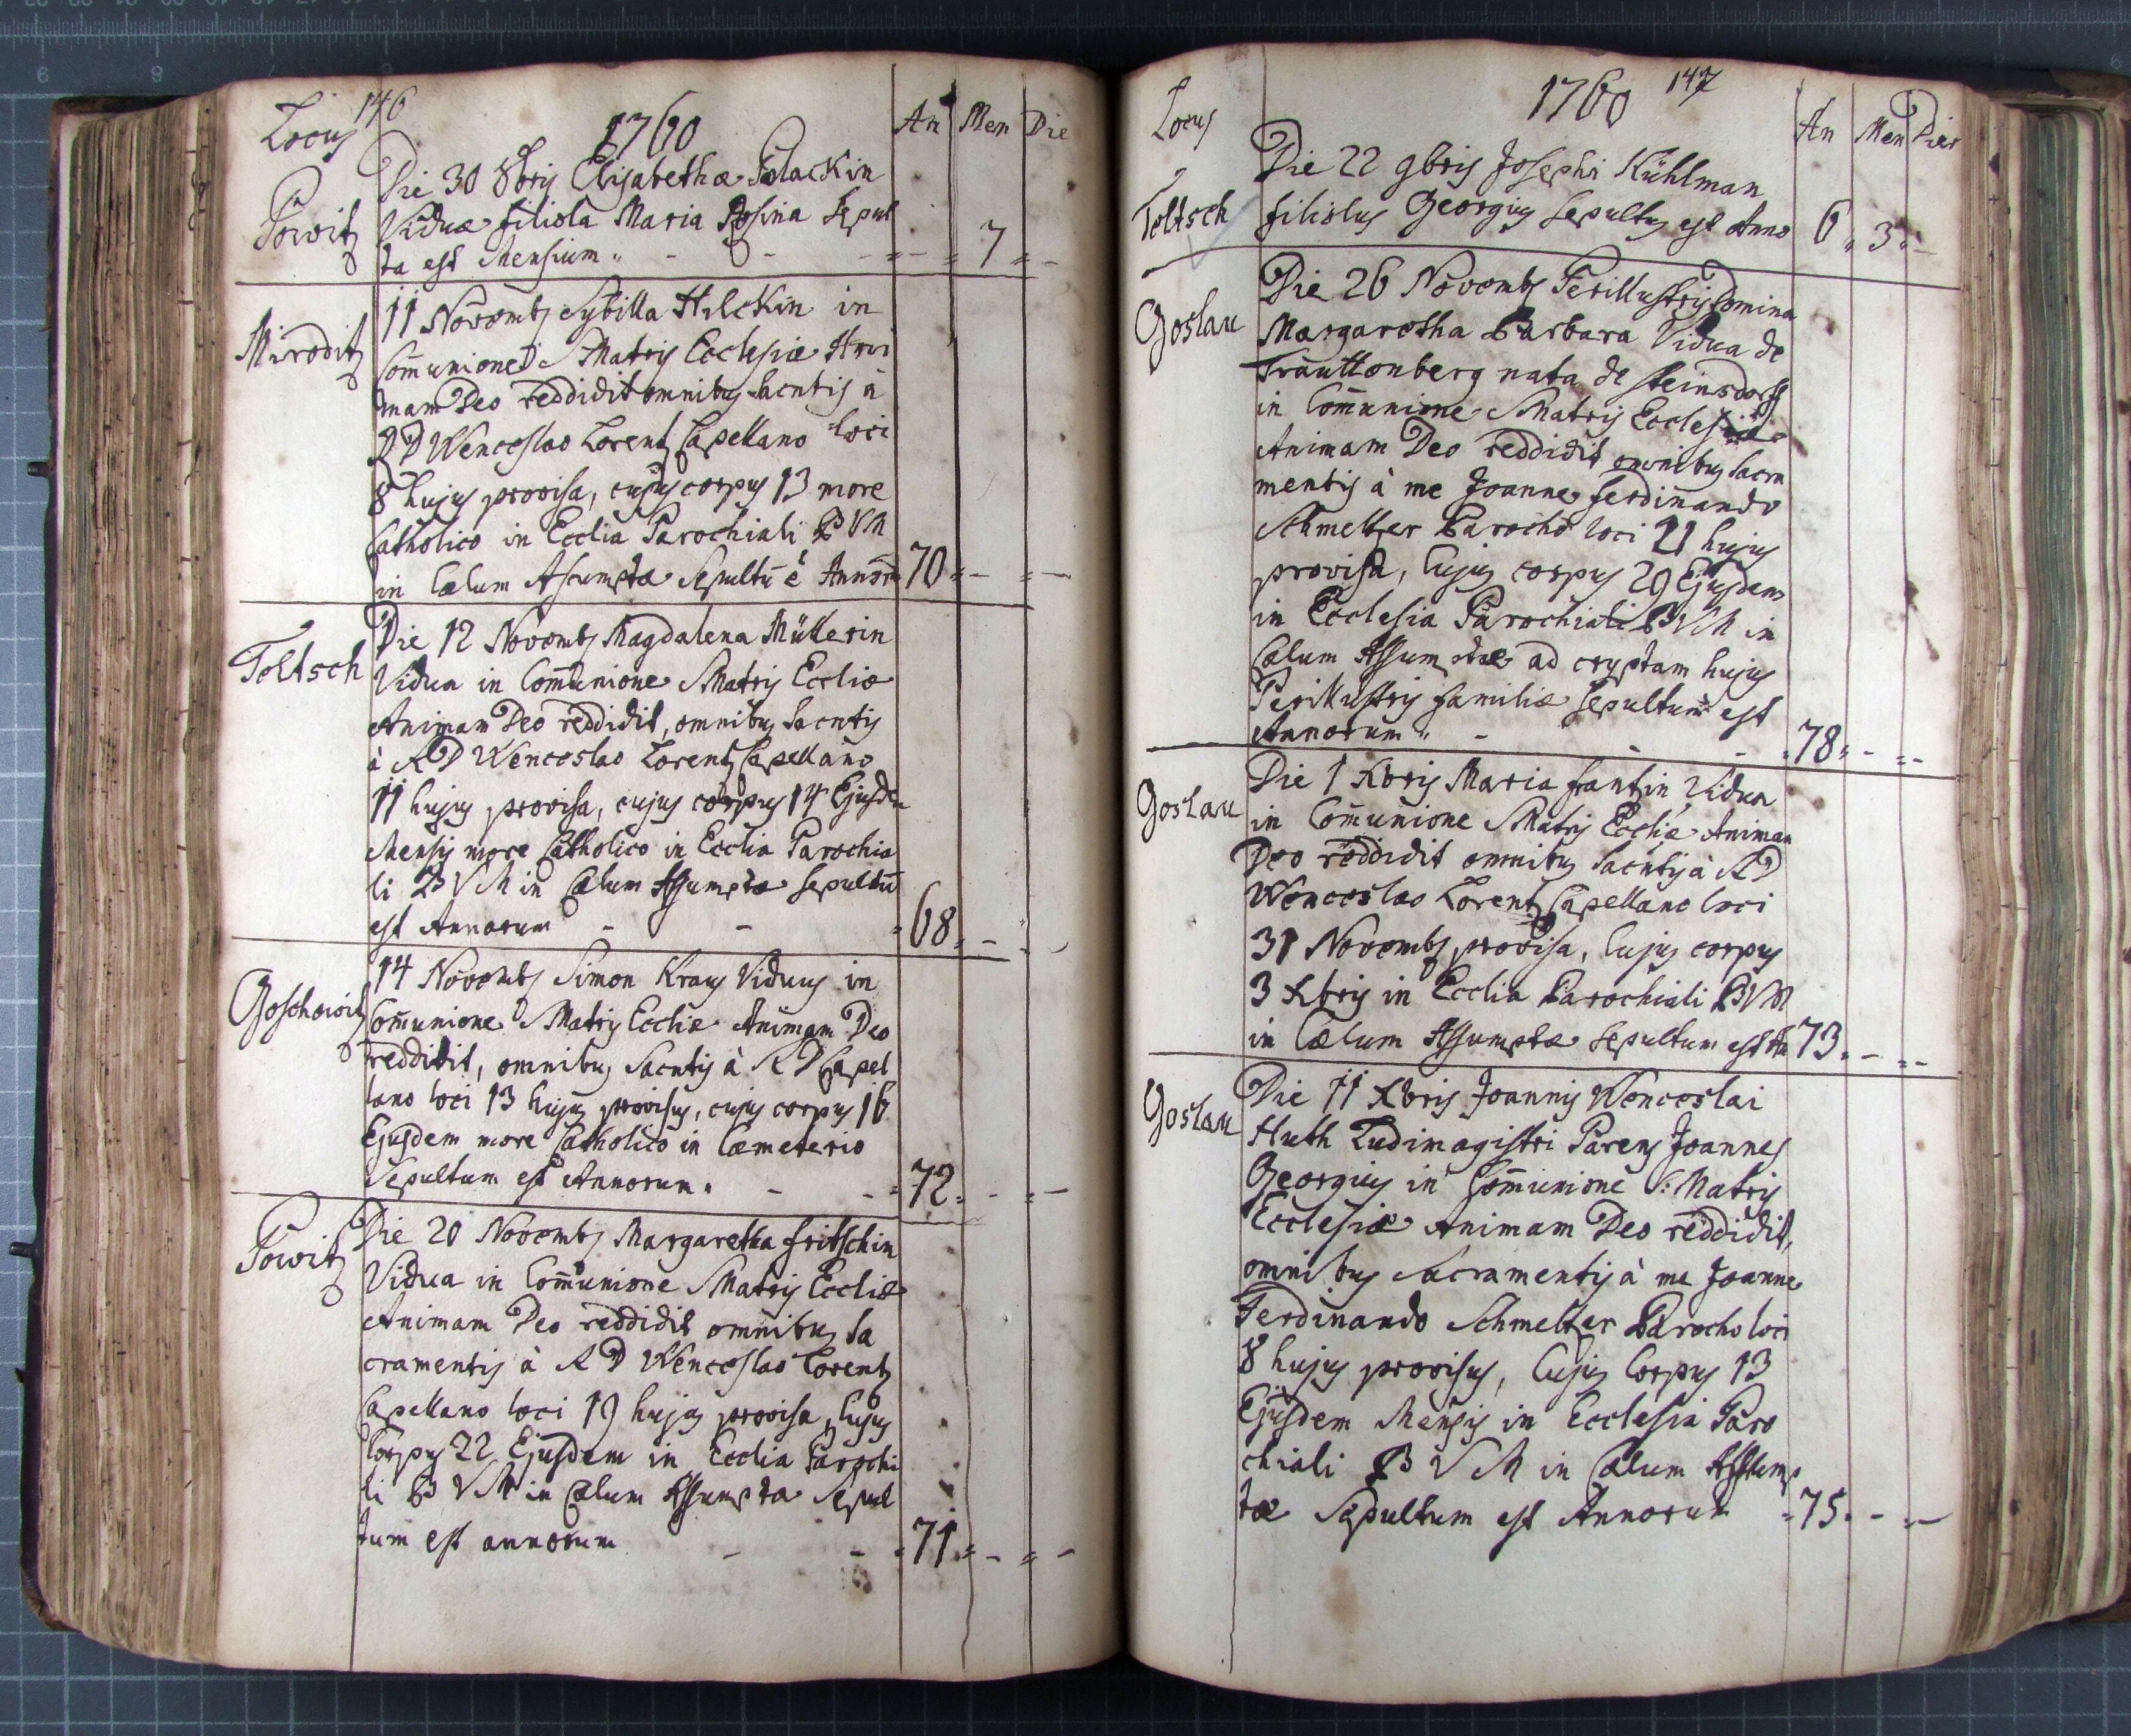 146
Locus
1760
An Men Die
Powitz
Die 30 8bris Elisabetha Polackin
Viduæ filiola Maria Rosina Sepul
ta est Mensium 7
Miroditz
11 Novemb Sybilla Hilckin in
Com̄unione S Matris Ecclesiæ Ani
mam Deo reddidit omnibus sacntis à
R D Wenceslao Lorentz Capellano loci
8 hujus provisa, cujus corpus 13 more
Catholico in Ecclia Parochiali B V M
in Cælum Asumptæ Sepultū ē Annorū 70
Toltsch
Die 12 Novemb Magdalena Müllerin
Vidua in Com̄unione S Matris Eccliæ
Animam Deo reddidit, omnibus Sacntis
à R D Wenceslao Lorentz Capellano
11 hujus provisa, cujus corpus 14 Ejusdem
Mensis more Catholico in Ecclia Parochia
li B V M in Cælum Assumptæ Sepultū
est Annorum 68
Goschowitz
14 Novemb Simon Kraus Viduus in
Com̄unione S Matris Eccliæ Animam Deo
reddidit, omnibus Sacntis à R D Capel
lano loci 13 hujus provisus, cujus corpus 16
Ejusdem more Catholico in Cæmeterio
Sepultum est Annorum 72
Powitz
Die 20 Novemb Margaretha Fritschin
Vidua in Com̄unione S Matris Eccliæ
Animam Deo reddidit omnibus Sa
cramentis à R D Wenceslao Lorentz
Capellano loci 19 hujus provisa, Cujus
Corpus 22 Ejusdem in Ecclia Parochi
li B V M in Cælum Assumpta Sepul
tum est annorum 71
147
Locus
1760
An Men Dies
Toltsch
Die 22 9bris Josephi Kühlman
filiolus Georgius Sepultus est Anno 6 3
Goslau
Die 26 Novemb Perillustris Domina
Margaretha Barbara Vidua de
Trauttenberg nata de Steinsdorff
in Com̄unione S Matris Ecclesiæ
Animam Deo reddidit omnibus Sacra
mentis à me Joanne Ferdinando
Schmeltzer Parocho loci 21 hujus
provisa, Cujus corpus 29 Ejusdem
in Ecclesia Parochiali B V M in
Cælum Assumptæ ad cryptam hujus
Perillustris familiæ Sepultum est
Annorum 78
Goslau
Die 1 Xbris Maria Frantin, Vidua
in Com̄unione S Matris Eccliæ Animam
Deo reddidit omnibus Sacntis à R D
Wenceslao Lorentz Capellano loci
31 Novemb provisa, Cujus corpus
3 Xbris in Ecclia Parochiali B V M
in Cælum Assumptæ Sepultum est An 73
Goslau
Die 11 Xbris Joannis Wenceslai
Huth Ludimagistri Parens Joannes
Georgius in Com̄unione S: Matris
Ecclesiæ Animam Deo reddidit,
omnibus Sacramentis à me Joanne
Ferdinando Schmeltzer Parocho loci
8 hujus provisus, Cujus Corpus 13
Ejusdem Mensis in Ecclesia Paro
chiali B V M in Cælum Assump
tæ Sepultum est Annorum 75